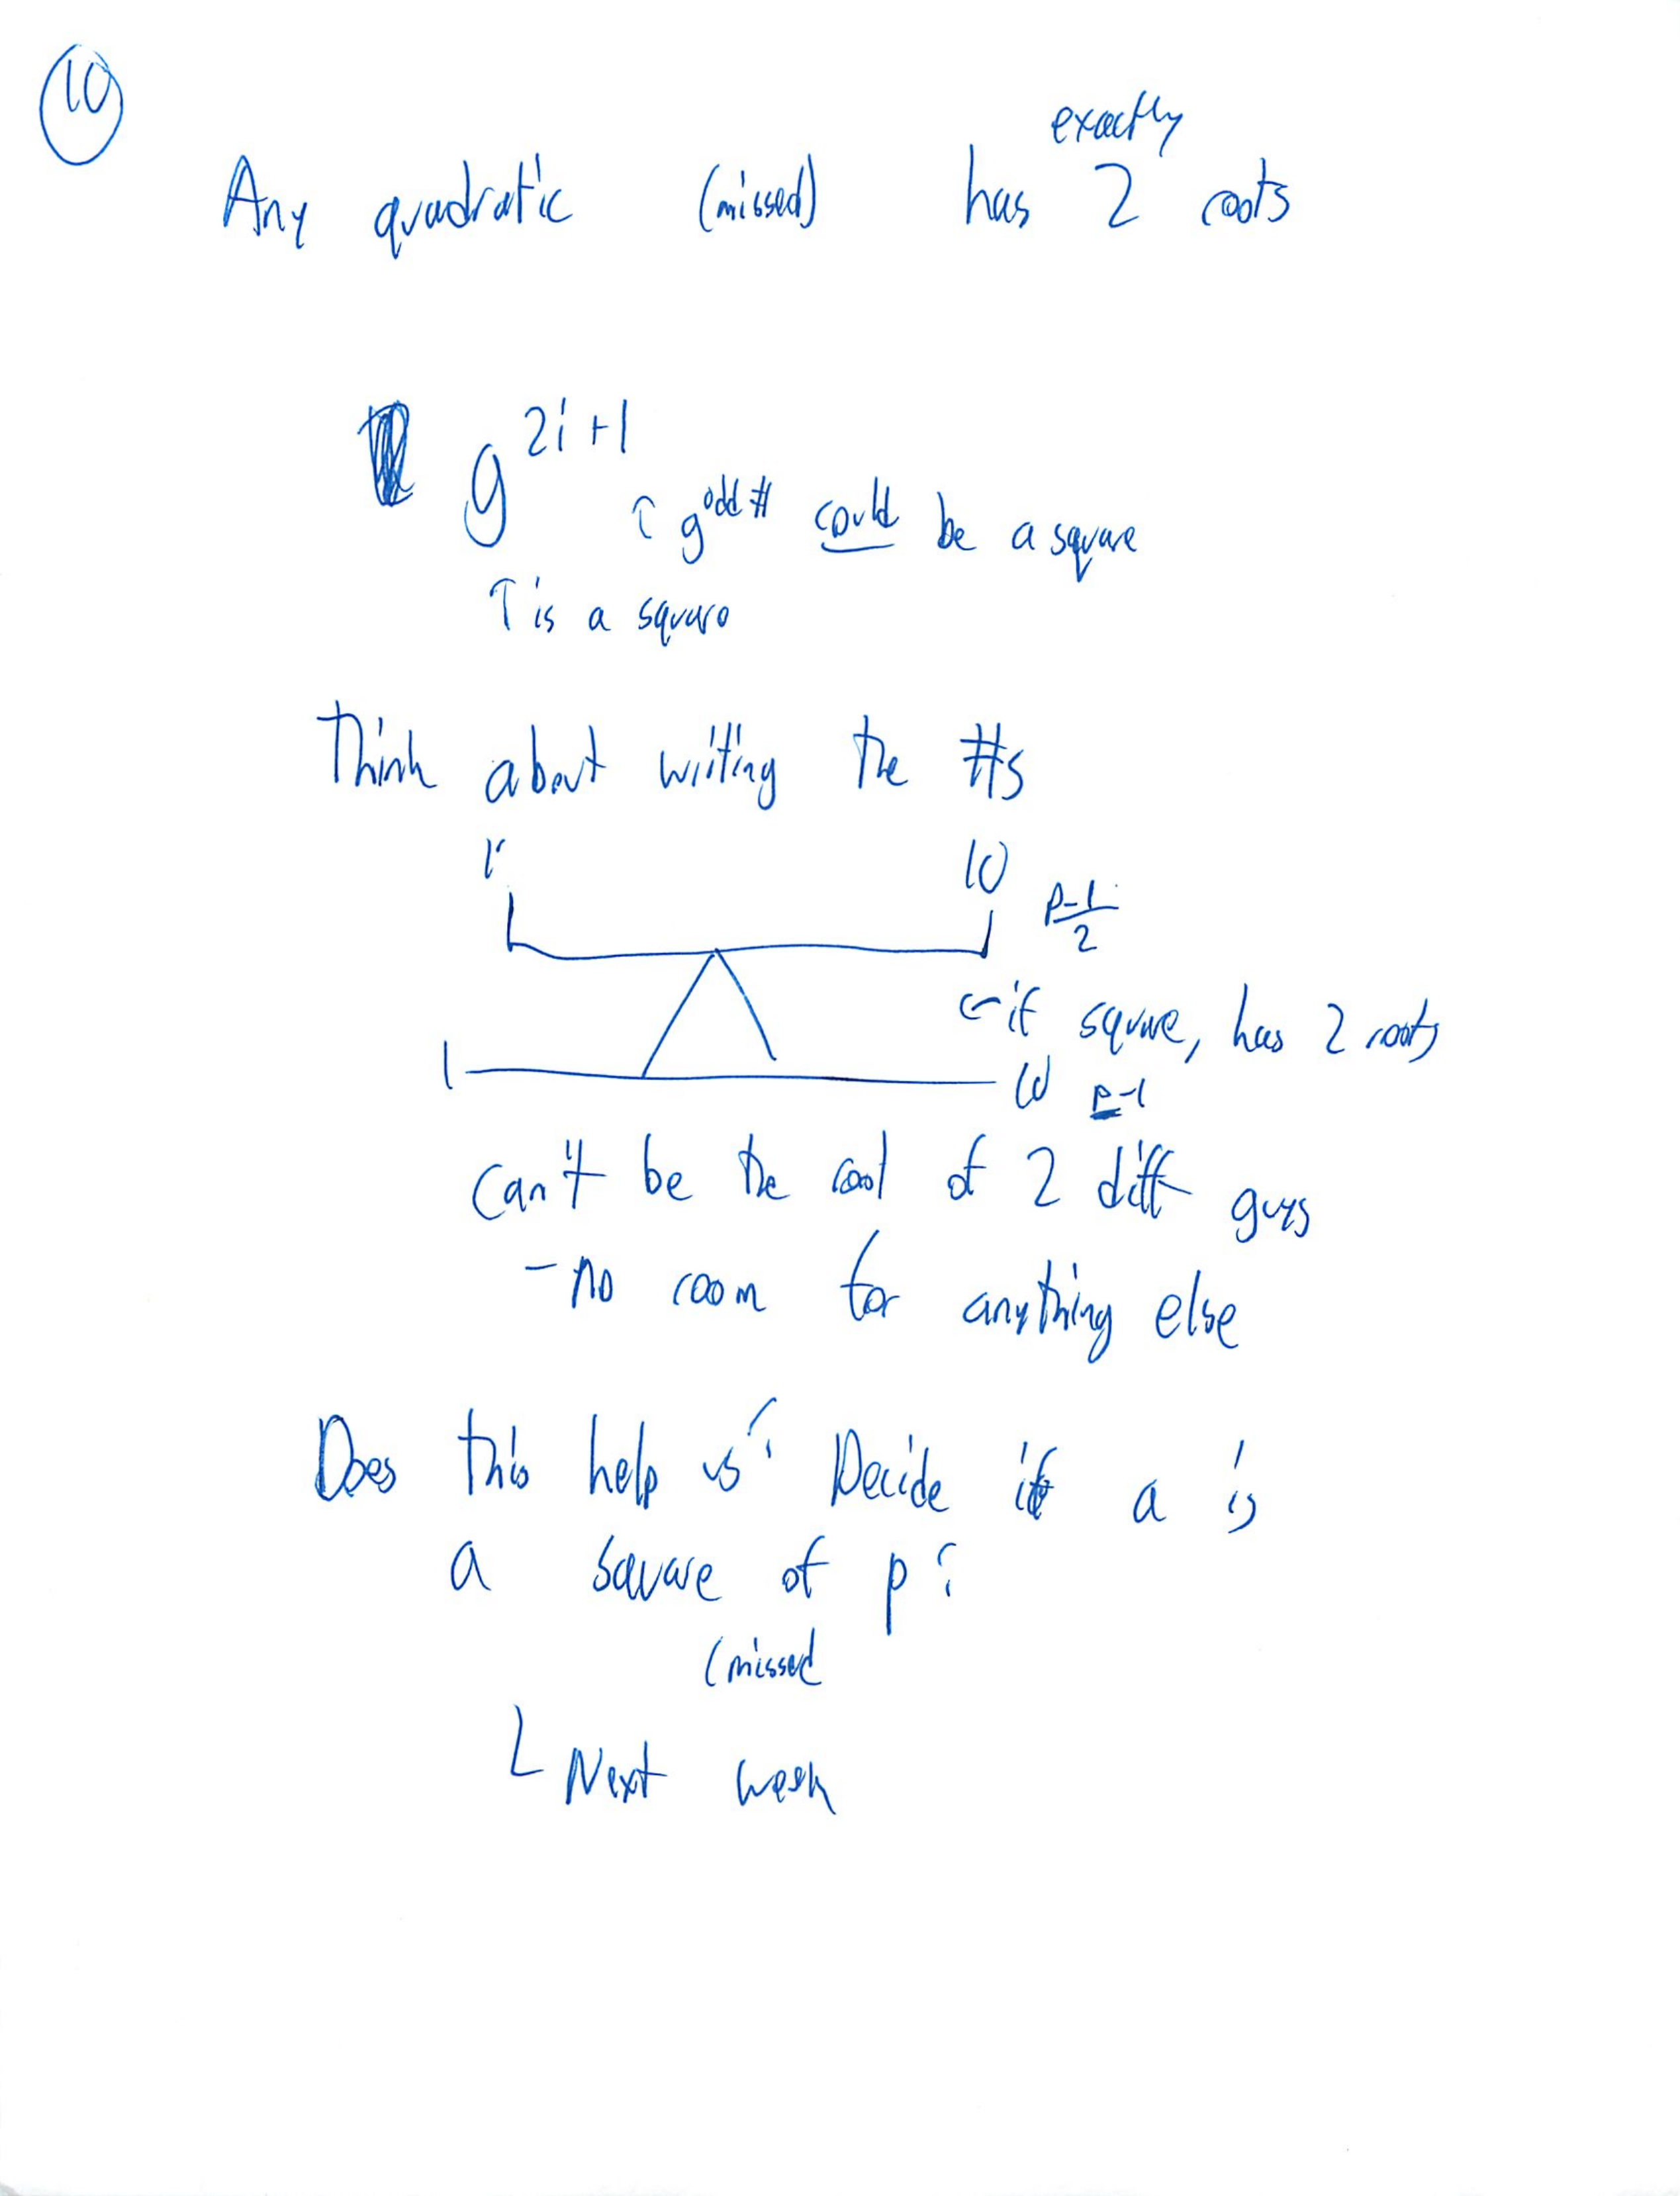 10
exactly
Any quadratic (missed) has 2 roots
g^{2i+1}
↑ g^{odd #} could be a square
↑ is a square
Think about writing the #s
1 10
p-1/2
← if square, has 2 roots
1 10 p-1
Can't be the root of 2 diff guys
- no room for anything else
Does this help us? Decide if a is
a square of p?
(missed
Next week